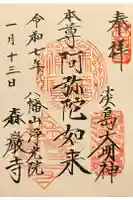 奉拝
淡島大明神
本尊阿弥陀如来
八幡山浄光院
森巖寺
令和七年
一月十三日